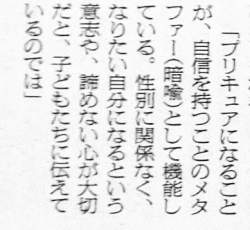 「プリキュアになること
が、自信を持つことのメタ
ファー（暗喩）として機能し
ている。性別に関係なく、
なりたい自分になるという
意志や、諦めない心が大切
だと、子どもたちに伝えて
いるのでは」